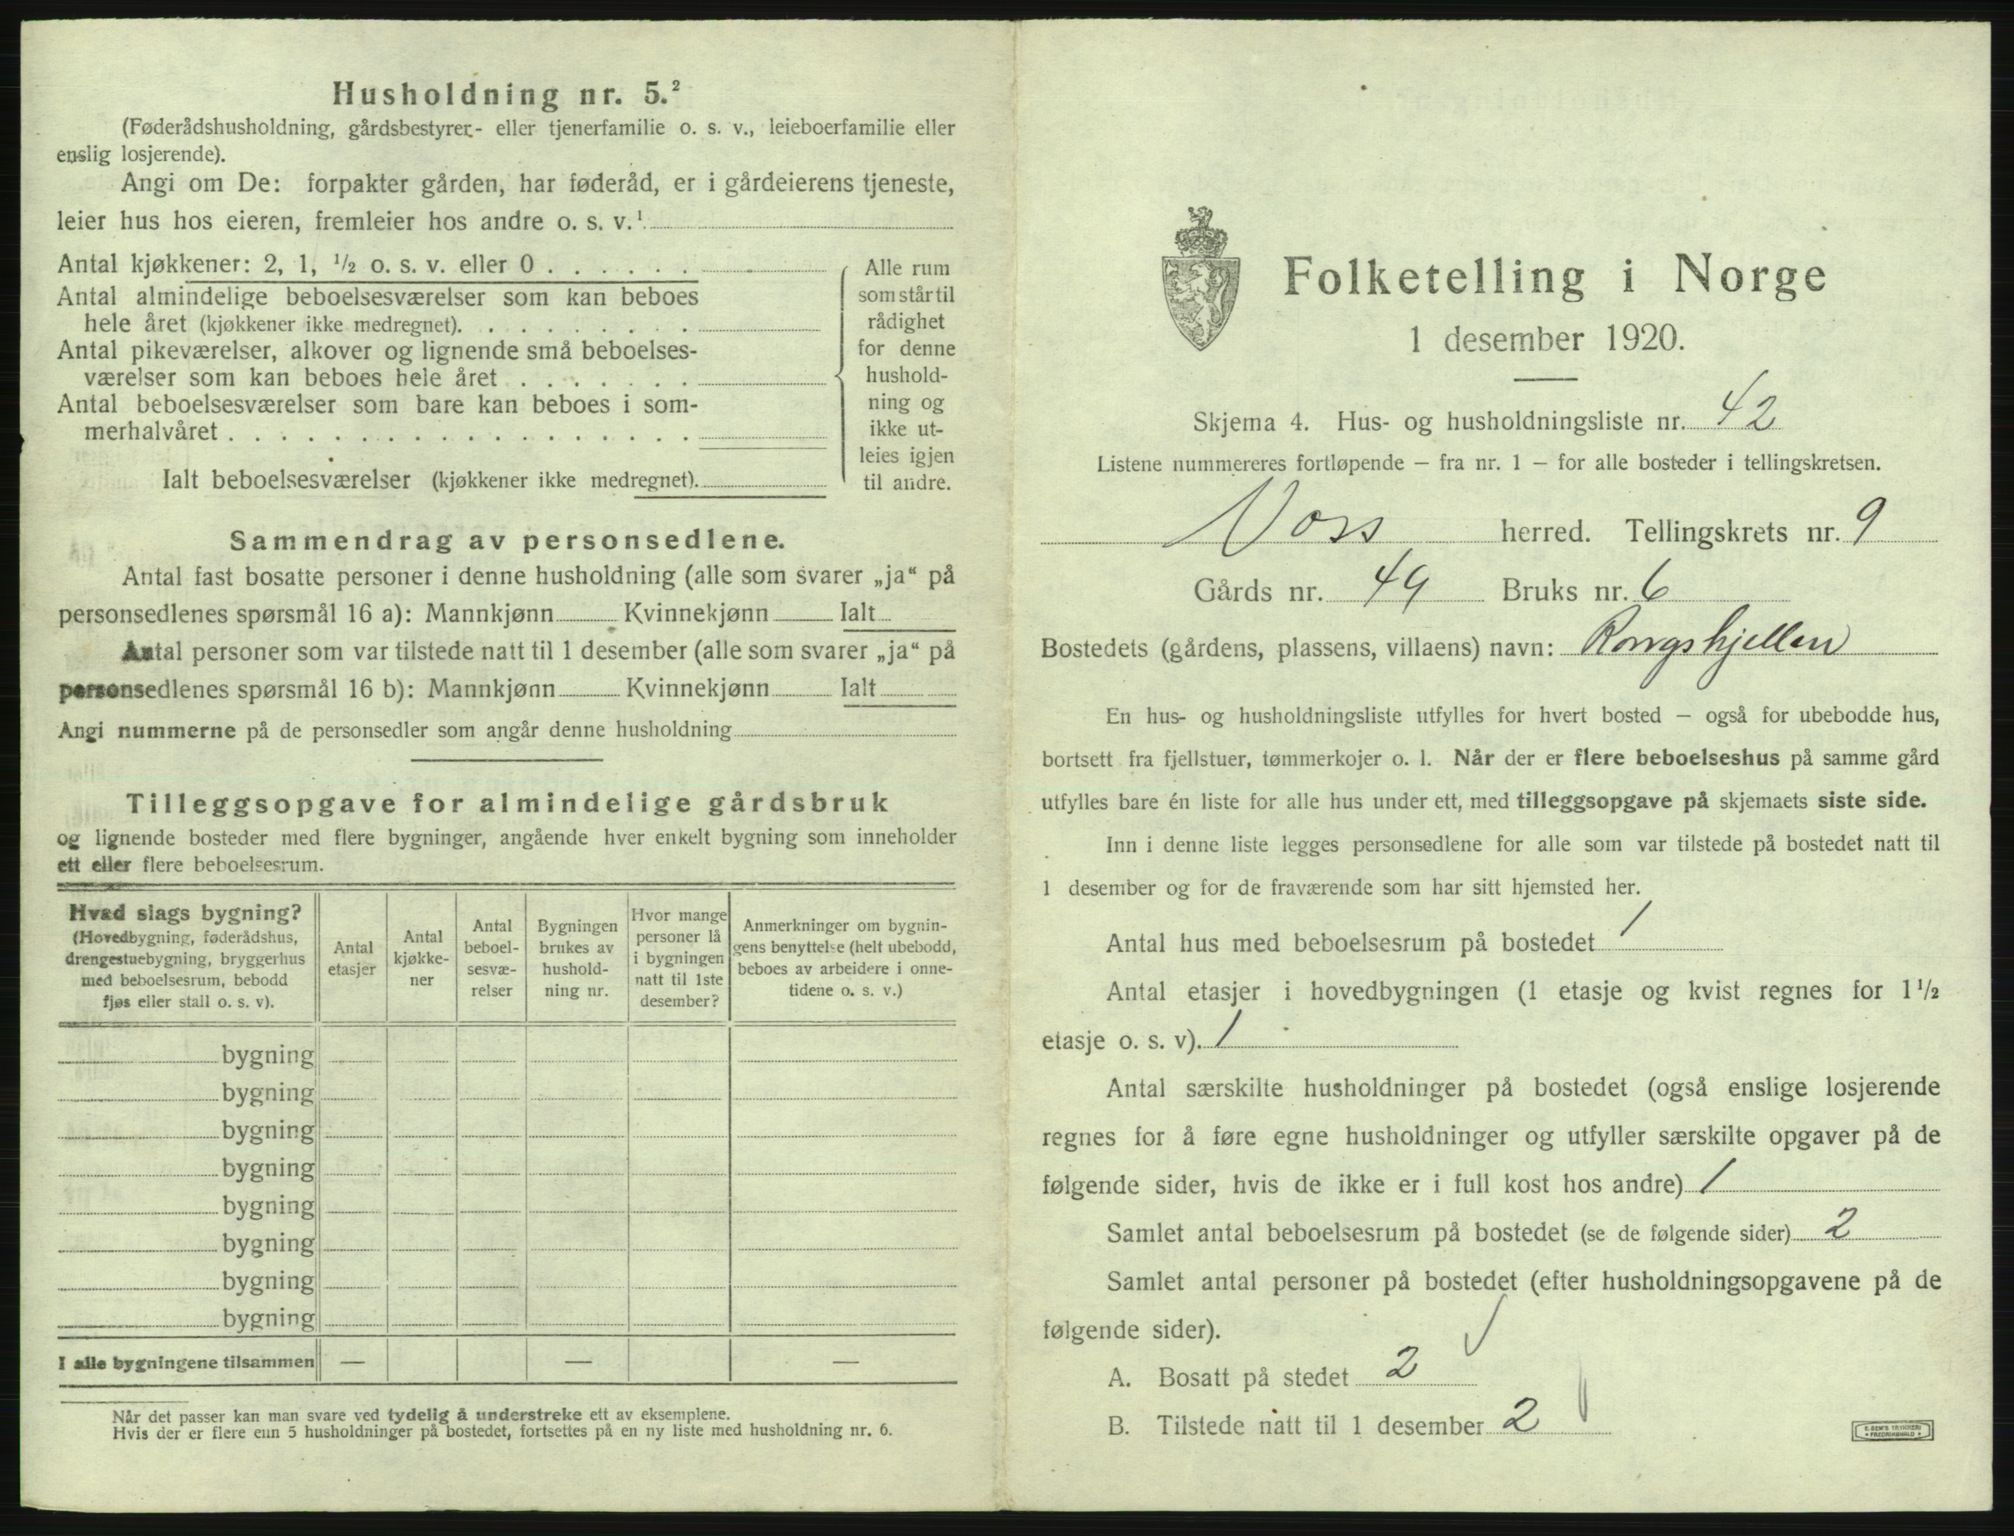 Husholdning nr. 5.²
(Føderådshusholdning, gårdsbestyrer- eller tjenerfamilie o. s. v., leieboerfamilie eller
enslig losjerende).
Angi om De: forpakter gården, har føderåd, er i gårdeierens tjeneste,
leier hus hos eieren, fremleier hos andre o. s. v.¹
Antal kjøkkener: 2, 1, ½ o. s. v. eller 0 . . . . . .
Antal almindelige beboelsesværelser som kan beboes
hele året (kjøkkener ikke medregnet). . . . . . . . .
Antal pikeværelser, alkover og lignende små beboelses-
værelser som kan beboes hele året . . . . . . .
Antal beboelsesværelser som bare kan beboes i som-
merhalvåret . . . . . . . . . . . . . . . . . .
Ialt beboelsesværelser (kjøkkener ikke medregnet).
Alle rum
som står til
rådighet
for denne
hushold-
ning og
ikke ut-
leies igjen
til andre.
Sammendrag av personsedlene.
Antal fast bosatte personer i denne husholdning (alle som svarer „ja“ på
personsedlenes spørsmål 16 a): Mannkjønn Kvinnekjønn Ialt
Antal personer som var tilstede natt til 1 desember (alle som svarer „ja“ på
personsedlenes spørsmål 16 b): Mannkjønn Kvinnekjønn Ialt
Angi nummerne på de personsedler som angår denne husholdning
Tilleggsopgave for almindelige gårdsbruk
og lignende bosteder med flere bygninger, angående hver enkelt bygning som inneholder
ett eller flere beboelsesrum.
Hvad slags bygning?
(Hovedbygning, føderådshus,
drengestuebygning, bryggerhus
med beboelsesrum, bebodd
fjøs eller stall o. s. v).
Antal
etasjer
Antal
kjøkke-
ner
Antal
beboel-
sesvæ-
relser
Bygningen
brukes av
hushold-
ning nr.
Hvor mange
personer lå
i bygningen
natt til 1ste
desember?
Anmerkninger om bygnin-
gens benyttelse (helt ubebodd,
beboes av arbeidere i onne-
tidene o. s. v.)
bygning
bygning
bygning
bygning
bygning
bygning
bygning
bygning
I alle bygningene tilsammen — — —
Når det passer kan man svare ved tydelig å understreke ett av eksemplene.
Hvis der er flere enn 5 husholdninger på bostedet, fortsettes på en ny liste med husholdning nr. 6.
Folketelling i Norge
1 desember 1920.
Skjema 4. Hus- og husholdningsliste nr. 42
Listene nummereres fortløpende — fra nr. 1 — for alle bosteder i tellingskretsen.
Voss herred. Tellingskrets nr. 9
Gårds nr. 49 Bruks nr. 6
Bostedets (gårdens, plassens, villaens) navn: Rongshjellen
En hus- og husholdningsliste utfylles for hvert bosted — også for ubebodde hus,
bortsett fra fjellstuer, tømmerkojer o. l. Når der er flere beboelseshus på samme gård
utfylles bare én liste for alle hus under ett, med tilleggsopgave på skjemaets siste side.
Inn i denne liste legges personsedlene for alle som var tilstede på bostedet natt til
1 desember og for de fraværende som har sitt hjemsted her.
Antal hus med beboelsesrum på bostedet 1
Antal etasjer i hovedbygningen (1 etasje og kvist regnes for 1½
etasje o. s. v). 1
Antal særskilte husholdninger på bostedet (også enslige losjerende
regnes for å føre egne husholdninger og utfyller særskilte opgaver på de
følgende sider, hvis de ikke er i full kost hos andre) 1
Samlet antal beboelsesrum på bostedet (se de følgende sider) 2
Samlet antal personer på bostedet (efter husholdningsopgavene på de
følgende sider).
A. Bosatt på stedet 2
B. Tilstede natt til 1 desember 2